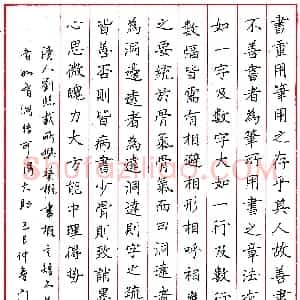 書重用筆用之存乎其人故善
不善書者為筆所用書之章法有
如一字及數字大如一行及數行
數幅皆需有相避相形相呼應
之要統於骨氣骨氣而曰洞達者
為洞邊透者為達洞達則字之疏
皆善否則皆病書少骨則致誚墨
心思微魄力大方能中理得勢
清人劉熙載所撰藝概書概
Shufaziliao.com